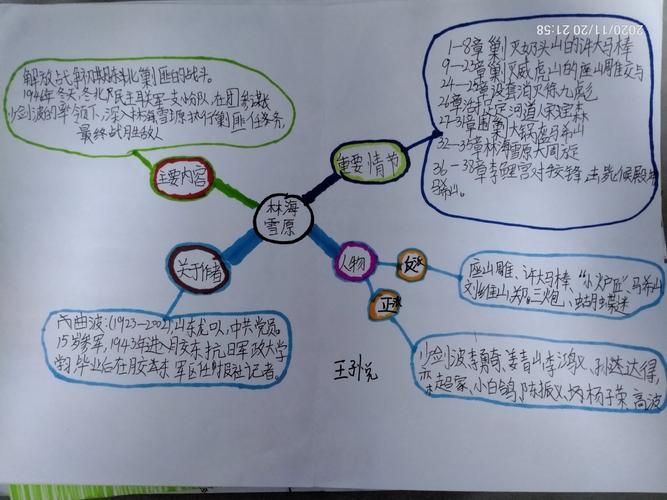 2020/11/20 21:58
解放战争初期东北剿匪的战斗。
1946年冬天,东北民主联军一支小分队,在团参谋长
少剑波的率领下,深入林海雪原执行剿匪任务,
最终战胜敌人
主要内容
1-8章剿灭奶头山的许大马棒
9-23章剿灭威虎山的座山雕
24-25章设套泊灭徐九彪
27-31章围剿大锅盔马希山
32-35章林海雪原大周旋
36-38章李鲤宫对按锋
马希山。
重要情节
林海
雪原
关于作者
人物
反派
正派
座山雕、许大马棒、“小炉匠”马希山
刘维山、郑三炮、蝴蝶迷
曲波:(1923-2002)山东龙口人,中共党员。
15岁参军,1943年进入胶东抗日军政大学
毕业后在胶东军区任时报社记者。
王孙悦
少剑波、李勇奇、姜青山、李鸿义、孙达得,
小白鸽、陈振义、杨子荣、高波